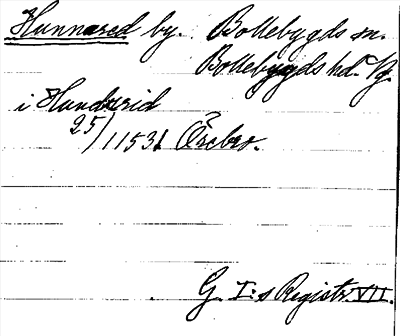 Hunnared by. Bollebygds sn.
Bollebygds hd. Vg.
i Hundzrid
25/1 1531 Örebro.
G. I:s Registr. VII.